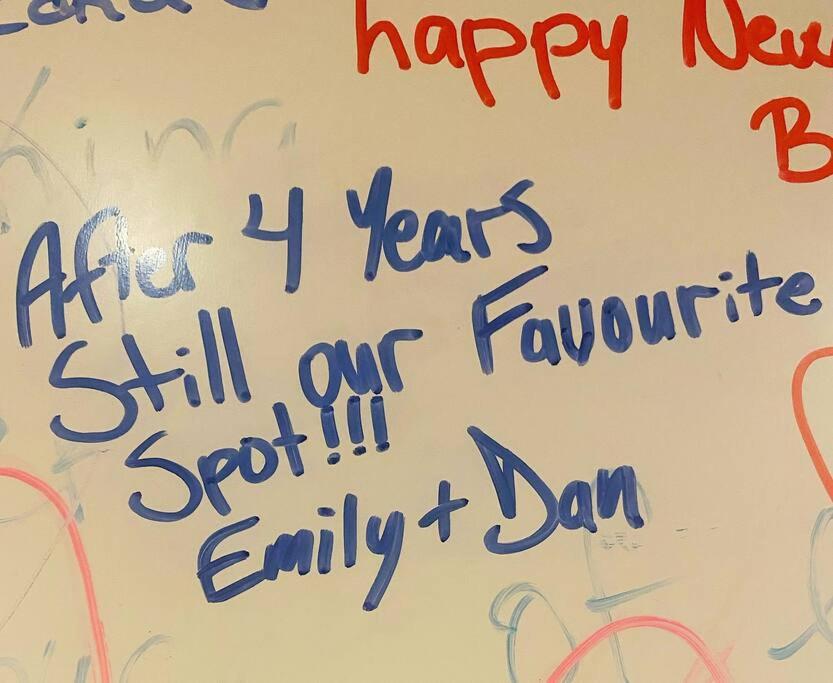 happy New
B
After 4 Years
Still our Favourite
Spot!!!
Emily + Dan